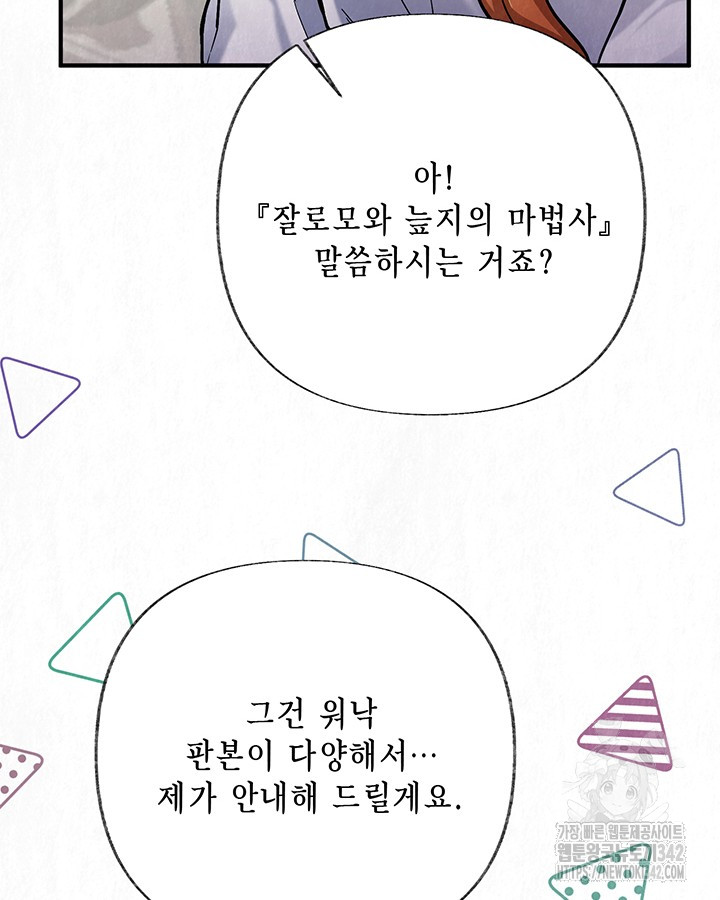 아!
『잘로모와 늪지의 마법사』
말씀하시는 거죠?
그건 워낙
판본이 다양해서…
제가 안내해 드릴게요.
가장 빠른 웹툰제공사이트
웹툰왕국뉴토끼342
HTTPS://NEWTOKI342.COM